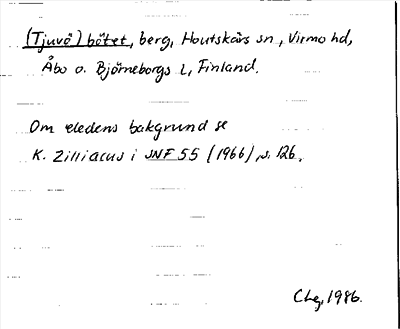 (Tjuvö) bötet, berg, Houtskärs sn, Virmo hd,
Åbo o. Björneborgs l, Finland.
Om eledens bakgrund se
K. Zilliacus i SNF 55 (1966), s. 126.
CLeg, 1986.